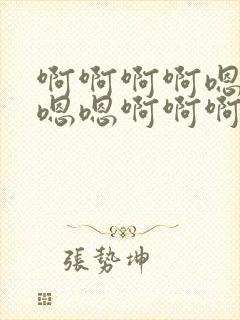 啊啊啊啊嗯
嗯嗯啊啊啊
張勢坤